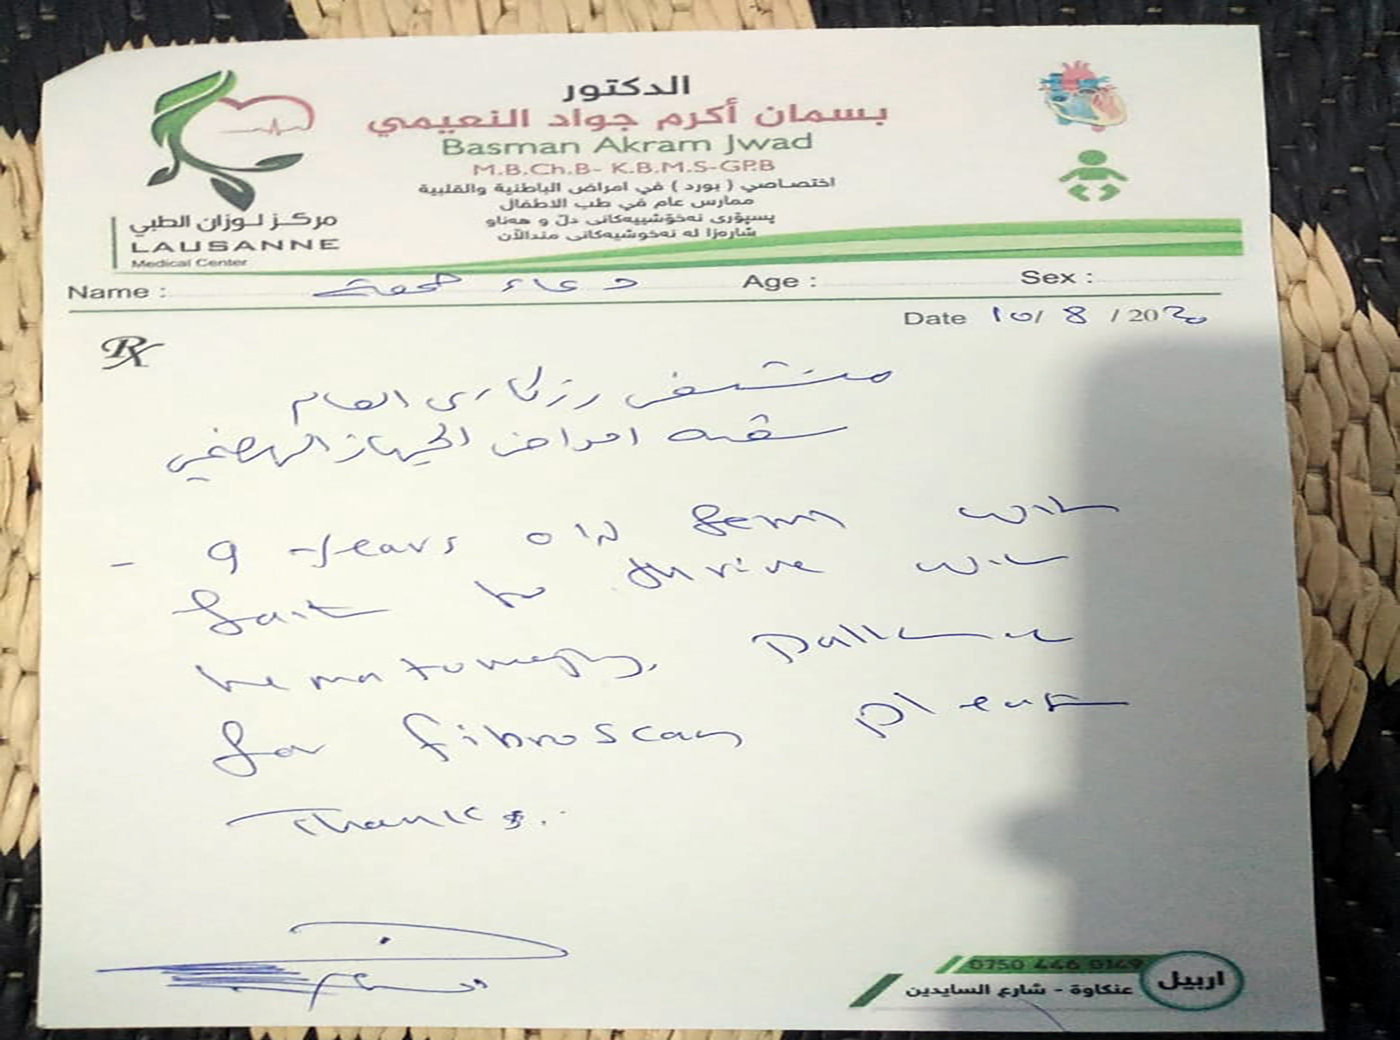 الدكتور
بسمان أكرم جواد النعيمي
Basman Akram Jwad
M.B.Ch.B- K.B.M.S-GP.B
اختصاصي ( بورد ) في امراض الباطنية والقلبية
ممارس عام في طب الاطفال
پسپۆری نەخۆشییەکانی دڵ و هەناو
شارەزا لە نەخوشیەکانی منداڵان
مركز لوزان الطبي
LAUSANNE
Medical Center
Name : دعاء
Age :
Sex :
Date 10/ 8 / 2020
Rx
رزكاري العام
امراض الجهاز الهضمي
- 9 years old with
to thrive with
for fibroscan please
Thanks..
0750 446 0149
عنكاوة - شارع السايدين
اربيل